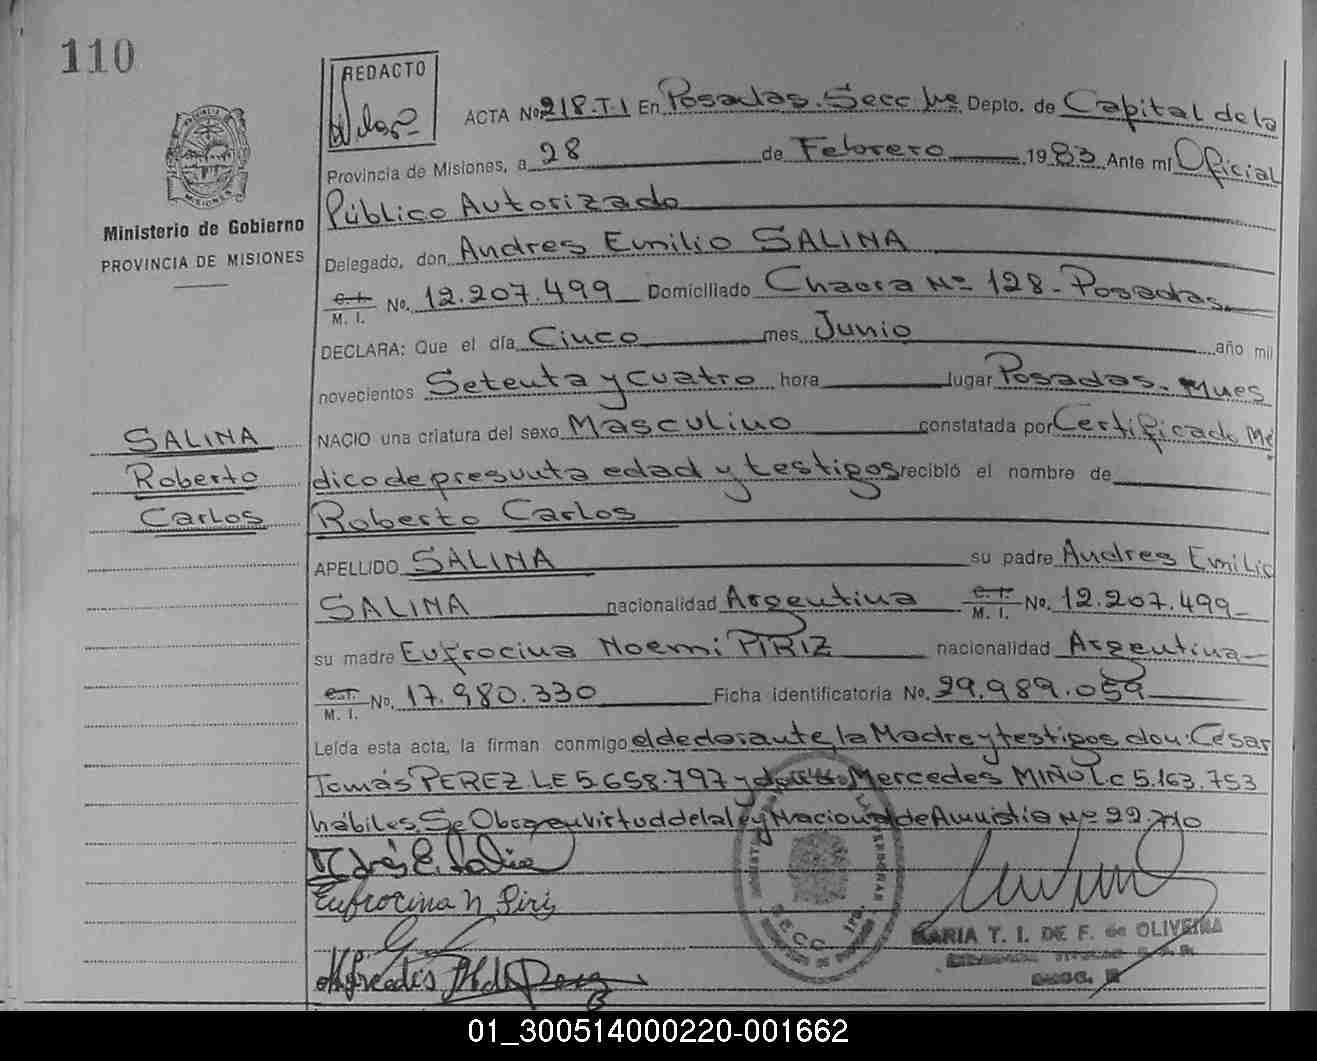 110
REDACTO
ACTA No 218.T.1 En Posadas. Secc 1ra Depto. de Capital de la
Provincia de Misiones, a 28 de Febrero 1983 Ante mi Oficial
Público Autorizado
Ministerio de Gobierno
PROVINCIA DE MISIONES
Delegado, don Andres Emilio SALINA
C.I.
M. I. No. 12.207.499 Domiciliado Chacra Nº 128 - Posadas
DECLARA: Que el día Cinco mes Junio año mil
novecientos Setenta y cuatro hora lugar Posadas. Mnes
SALINA
Roberto
Carlos
NACIO una criatura del sexo Masculino constatada por Certificado Mé
dico de presunta edad y testigos recibió el nombre de
Roberto Carlos
APELLIDO SALINA su padre Andres Emilio
SALINA nacionalidad Argentina C.I.
M. I. No. 12.207.499
su madre Eufrocina Noemi PIRIZ nacionalidad Argentina
C.I.
M. I. No. 17.980.330 Ficha identificatoria No. 29.989.059
Leída esta acta, la firman conmigo el declarante, la Madre y testigos don: César
Tomás PEREZ. LE 5.658.797 y Mercedes MIÑO Lc 5.163.753
hábiles. Se Obra en virtud de la ley Nacional de Amnistia Nº 22.710
Eufrocina N Piriz
SECC. 1ra.
MARIA T. I. DE F. de OLIVEIRA
01_300514000220-001662